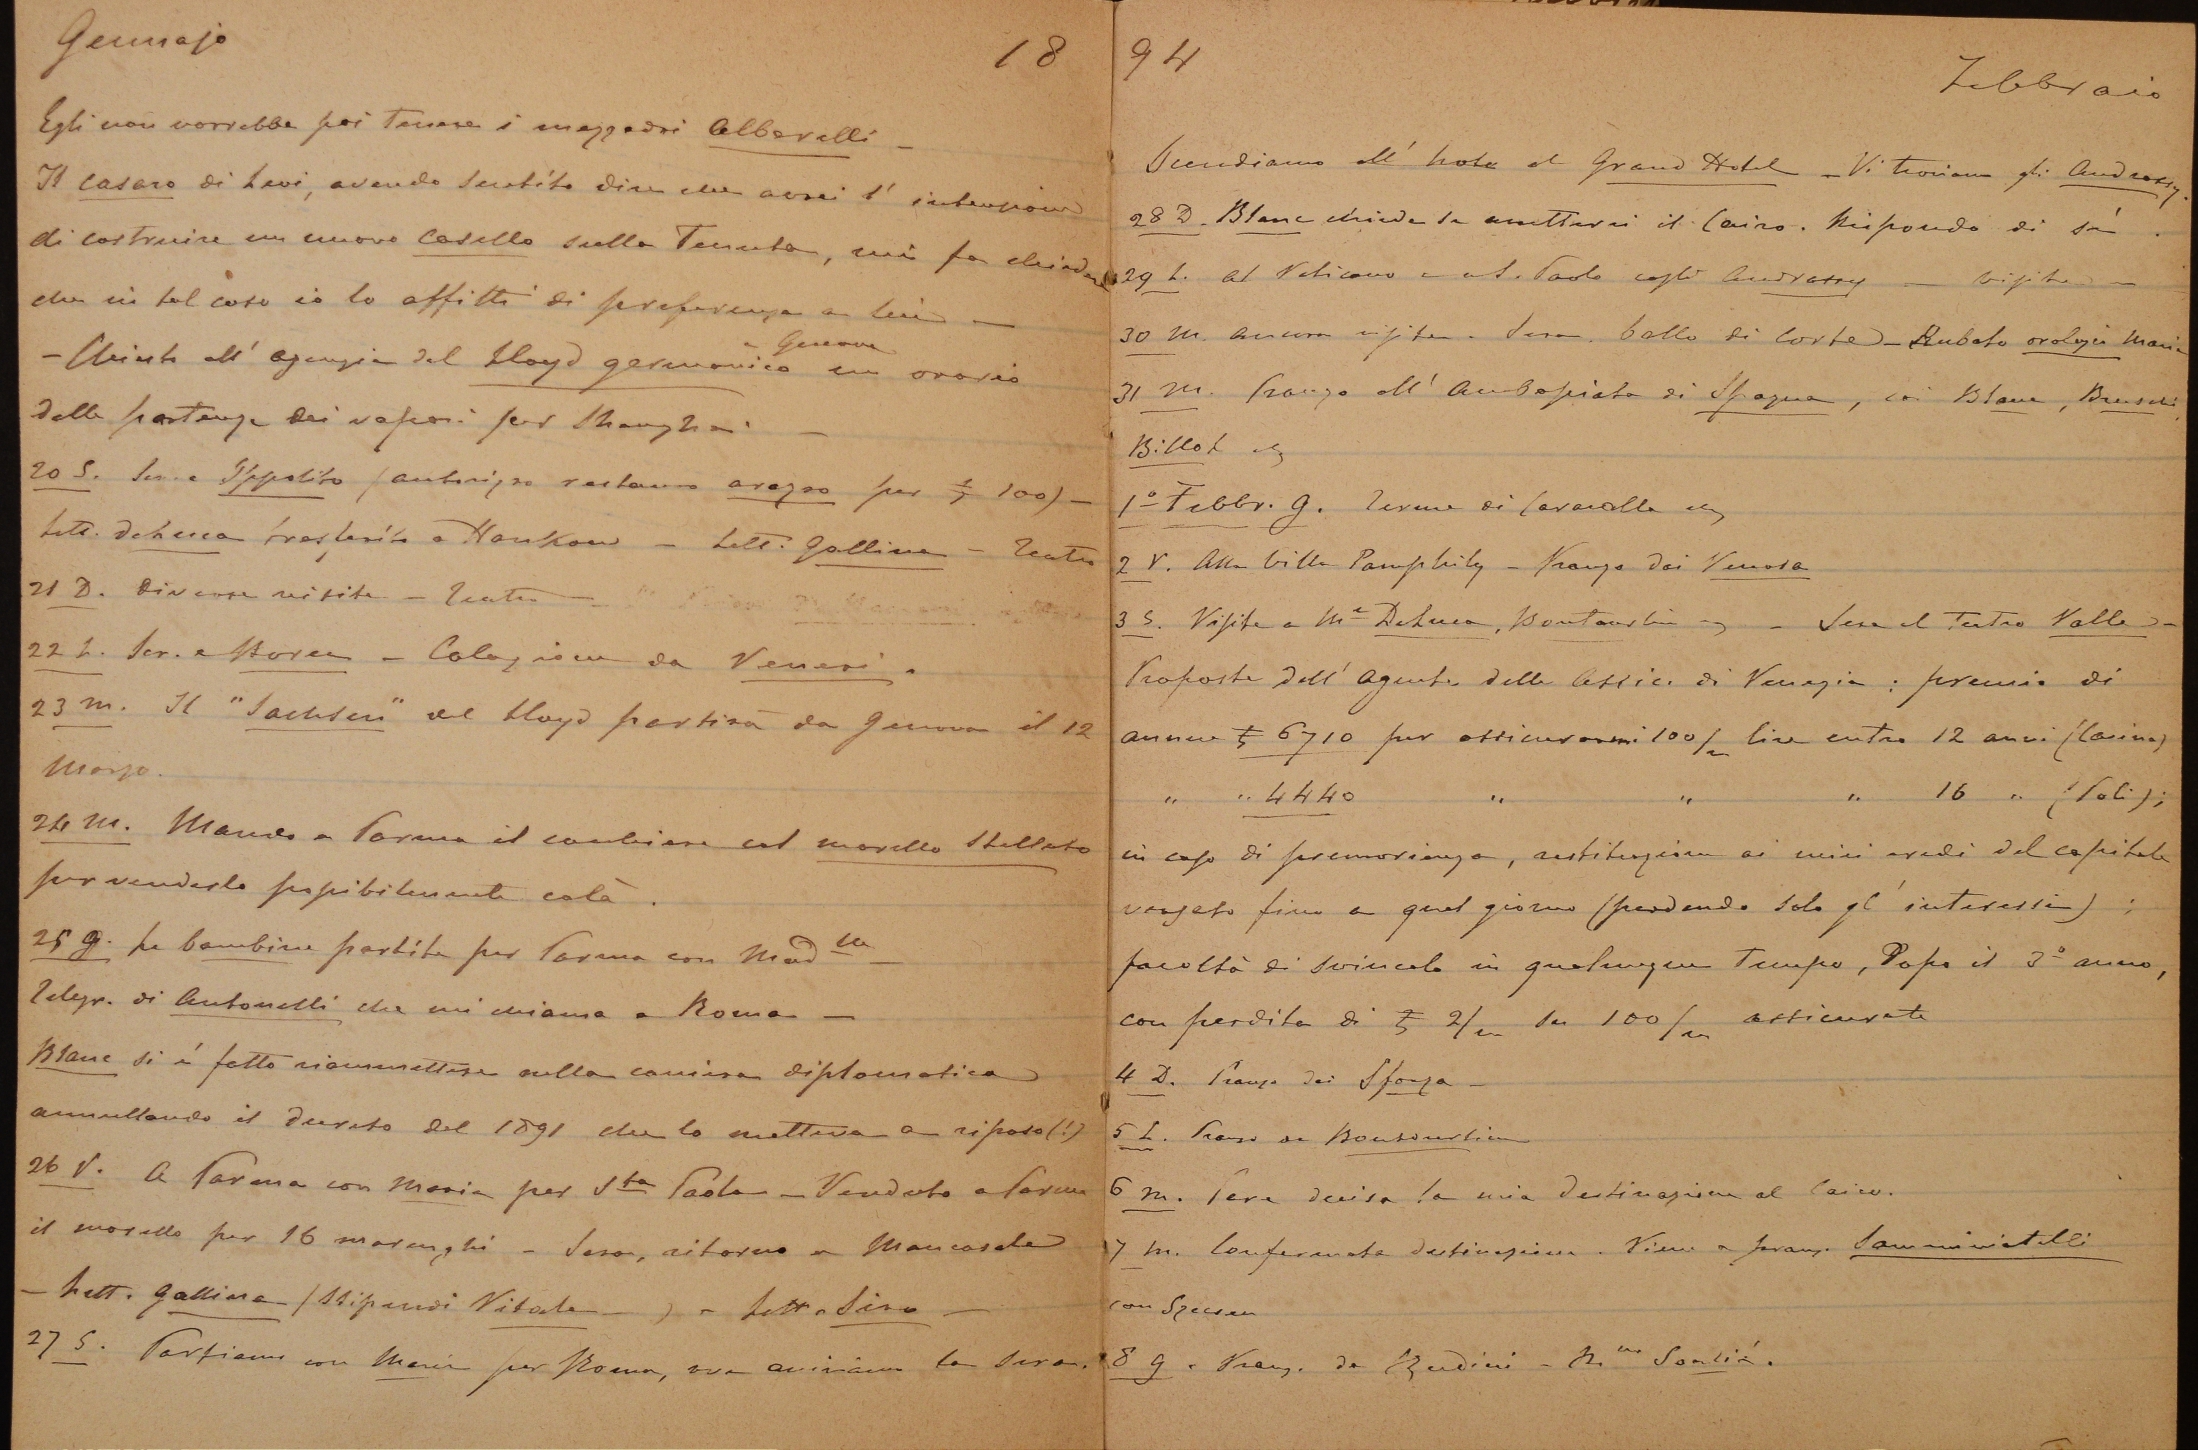 Gennajo 18
Egli non vorrebbe poi tenere i mezzadri Alberelli —
Il casaro di Levi, avendo sentito dire che avrei l' intenzione
di costruire un nuovo casello sulla Tenuta, mi fa chiedere
che in tal caso io lo affitti di preferenza a lui —
a Genova
— Chiesto all' agenzia del Lloyd germanico un orario
delle partenze dei vapori per Shanghai —
20 S. Scr. a Ippolito (autorizzo restauro arazzo per £ 100) —
Lett. DeLuca trasferito a Hankow — Lett. Gallina — Teatro
21 D. Diverse visite — Teatro —
22 L. Scr. a Borea — Colazione da Veneri.
23 M. Il "Sachsen" del Lloyd partirà da Genova il 12
Marzo.
24 M. Mando a Parma il cocchiere col morello stellato
per venderlo possibilmente colà.
25 G. Le bambine partite per Parma con Mad.lle —
Telegr. di Antonelli che mi chiama a Roma —
Blanc si è fatto riammettere nella carriera diplomatica
annullando il decreto del 1891 che lo metteva a riposo (!)
26 V. A Parma con Maria per Sta Paola — Venduto a Parma
il morello per 16 marenghi — Sera, ritorno a Mancasale
— Lett. Gallina (stipendi Vitale — ) — Lett.
27 S. Partiamo con Maria per Roma, ove arriviamo la sera.
94 Febbraio
Scendiamo all' hotel al Grand Hotel — Vi troviamo gli Andrassy.
28 D. Blanc chiede se accetterei il Cairo. Rispondo di sì.
29 L. Al Vaticano e a S. Paolo cogli Andrassy — visite —
30 M. Ancora visite. Sera. ballo di Corte — Rubato orologio Maria
31 M. Pranzo all' Ambasciata di Spagna, coi Blanc, Bruschi,
Billot
1° Febbr. G. Terme di Caracalla
2 V. Alla villa Pamphily — Pranzo dai Venosa
3 S. Visite a Me DeLuca, — Sera al Teatro Valle —
Proposte dell' Agente delle Assic. di Venezia: premio di
annue £ 6710 per assicurarmi 100/m lire entro 12 anni (Casino)
" " 4440 " " " 16 " (Poli);
in caso di premorienza, restituzione ai miei eredi del capitale
versato fino a quel giorno (perdendo solo gl' interessi);
facoltà di svincolo in qualunque tempo, dopo il 3° anno,
con perdita di £ 2/m su 100/m assicurate
4 D. Pranzo dai Sforza —
5 L. Pranzo da
6 M. Pare decisa la mia destinazione al Cairo.
7 M. Confermata destinazione. Viene a pranzo Samminiatelli
con Szecsen
8 G. Pranz. da Rudini —